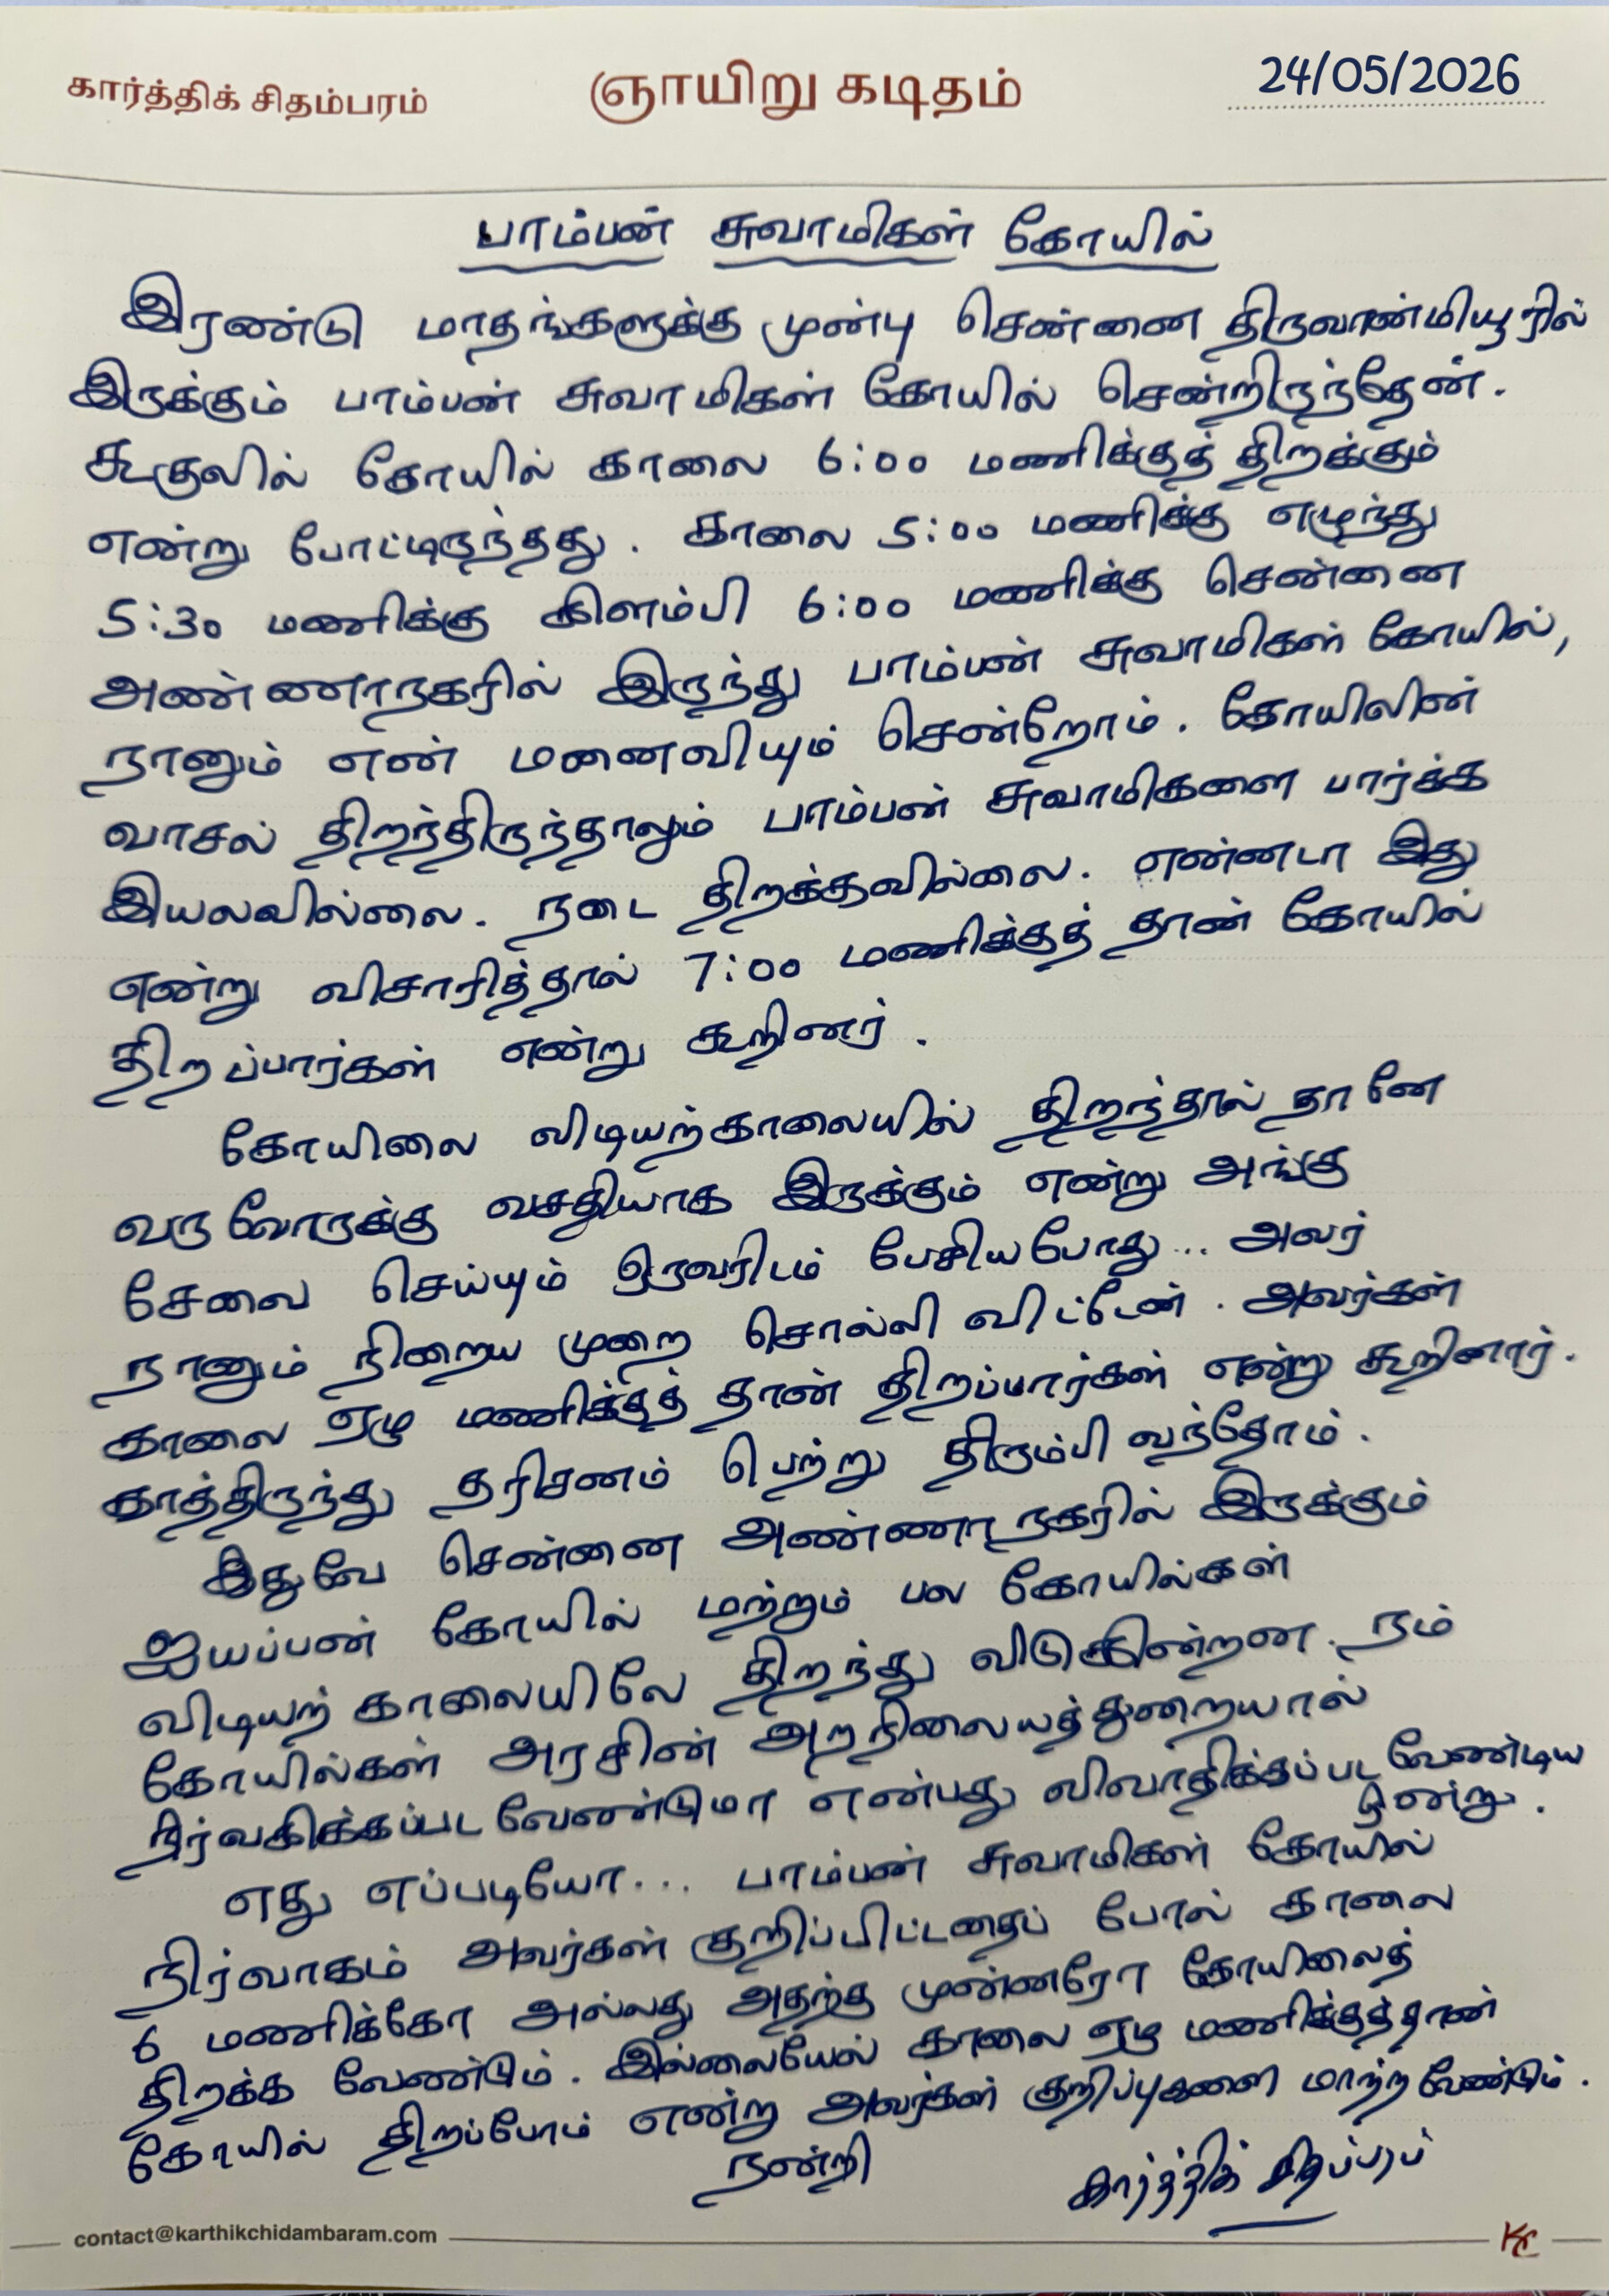 கார்த்திக் சிதம்பரம்
ஞாயிறு கடிதம்
24/05/2026
பாம்பன் சுவாமிகள் கோயில்
இரண்டு மாதங்களுக்கு முன்பு சென்னை திருவான்மியூரில்
இருக்கும் பாம்பன் சுவாமிகள் கோயில் சென்றிருந்தேன்.
கூகுலில் கோயில் காலை 6:00 மணிக்குத் திறக்கும்
என்று போட்டிருந்தது. காலை 5:00 மணிக்கு எழுந்து
5:30 மணிக்கு கிளம்பி 6:00 மணிக்கு சென்னை
அண்ணாநகரில் இருந்து பாம்பன் சுவாமிகள் கோயில்,
நானும் என் மனைவியும் சென்றோம். கோயிலின்
வாசல் திறந்திருந்தாலும் பாம்பன் சுவாமிகளை பார்க்க
இயலவில்லை. நடை திறக்கவில்லை. என்னடா இது
என்று விசாரித்தால் 7:00 மணிக்குத் தான் கோயில்
திறப்பார்கள் என்று கூறினர்.
கோயிலை விடியற்காலையில் திறந்தால் தானே
வருவோருக்கு வசதியாக இருக்கும் என்று அங்கு
சேவை செய்யும் ஒருவரிடம் பேசியபோது... அவர்
நானும் நிறைய முறை சொல்லி விட்டேன். அவர்கள்
காலை ஏழு மணிக்குத் தான் திறப்பார்கள் என்று கூறினார்.
காத்திருந்து தரிசனம் பெற்று திரும்பி வந்தோம்.
இதுவே சென்னை அண்ணாநகரில் இருக்கும்
ஐயப்பன் கோயில் மற்றும் பல கோயில்கள்
விடியற் காலையிலே திறந்து விடுகின்றன. நம்
கோயில்கள் அரசின் அறநிலையத்துறையால்
நிர்வகிக்கப்பட வேண்டுமா என்பது விவாதிக்கப்பட வேண்டிய
ஒன்று.
எது எப்படியோ... பாம்பன் சுவாமிகள் கோயில்
நிர்வாகம் அவர்கள் குறிப்பிட்டதைப் போல் காலை
6 மணிக்கோ அல்லது அதற்கு முன்னரோ கோயிலைத்
திறக்க வேண்டும். இல்லையேல் காலை ஏழு மணிக்குத்தான்
கோயில் திறப்போம் என்று அவர்கள் குறிப்புகளை மாற்ற வேண்டும்.
நன்றி
கார்த்திக் சிதம்பரம்
contact@karthikchidambaram.com
KC